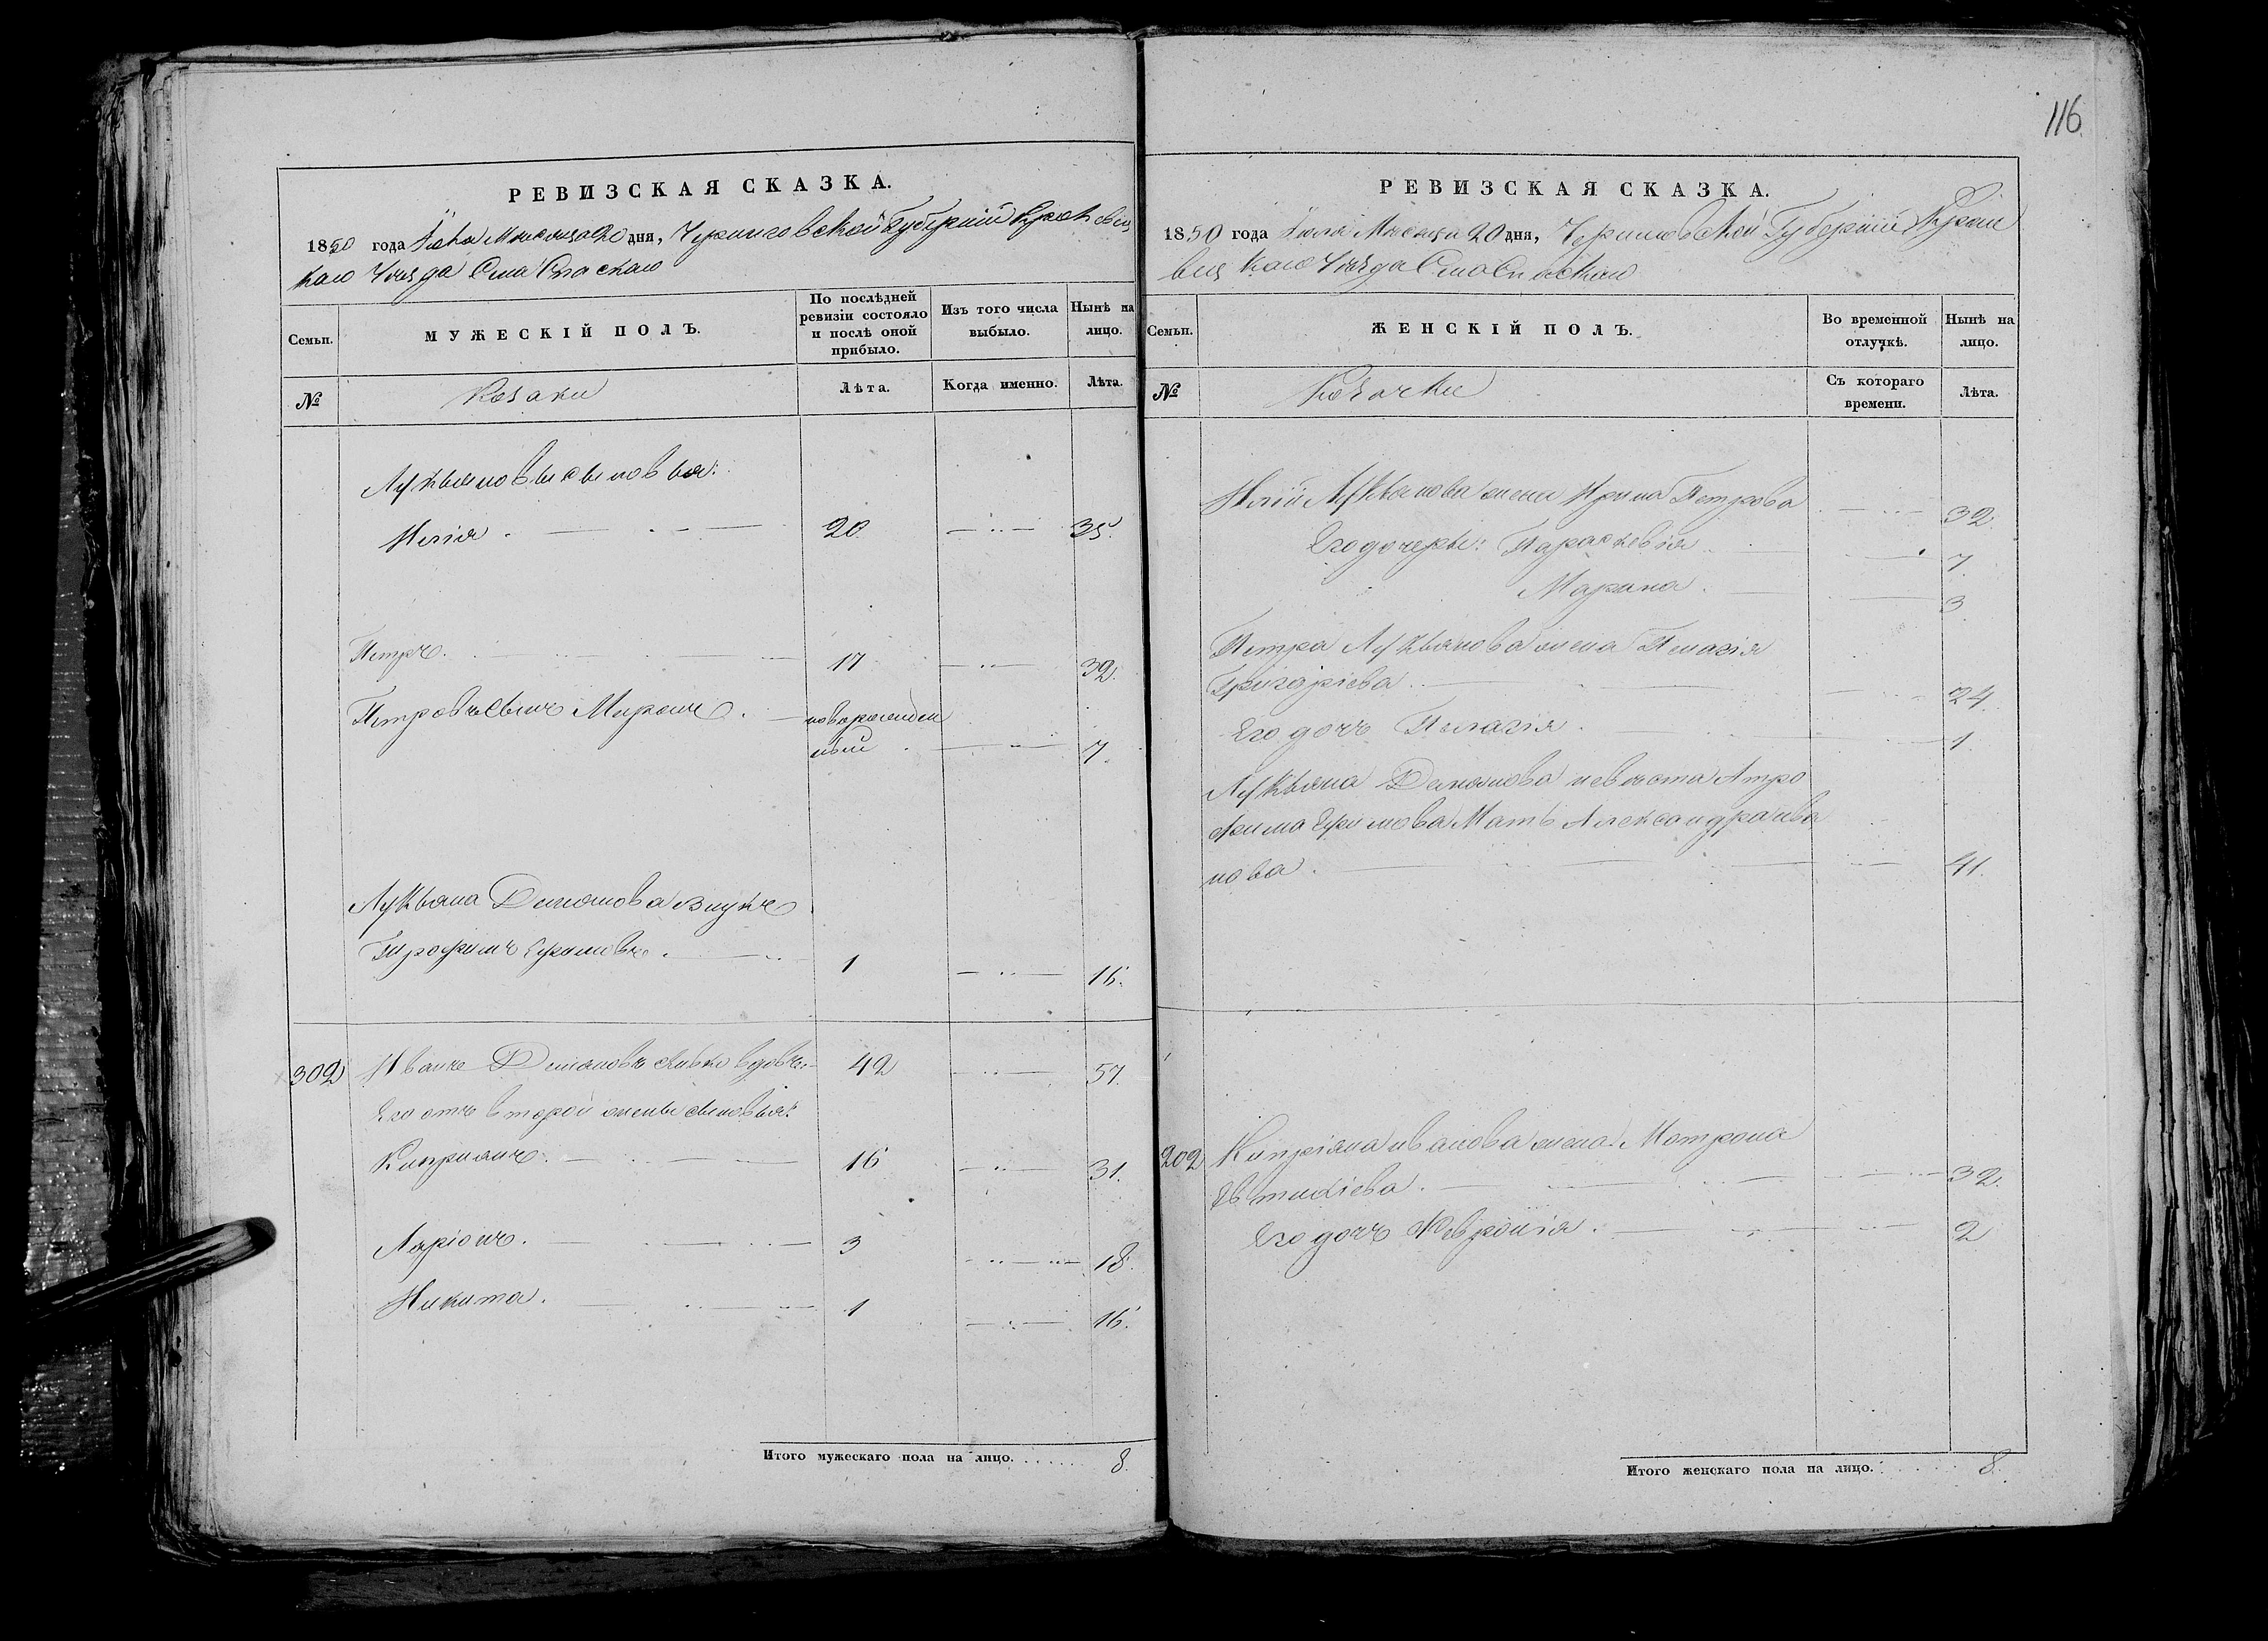 116
РЕВИЗСКАЯ СКАЗКА.
1850 года Июля Мѣсяца 20 дня, Черниговской Губерніи Кролевец
каго Уезда Села Спаскаго
Семьи.
МУЖЕСКІЙ ПОЛЪ.
По послѣдней ревизіи состояло и послѣ оной прибыло.
Изъ того числа выбыло.
Нынѣ на лицо.
№
Козаки
Лѣта.
Когда именно.
Лѣта.
Лукьяновы сыновья:
Илія 20 35.
Петръ 17 32.
Петровъ сынъ Миронъ новорожден
ный 7.
Лукьяна Демянова внукъ
Трофимъ Ефимовъ 1 16.
302 Иванъ Демяновъ вдовъ 42 57.
Его отъ второй жены сыновья:
Киприанъ 16 31.
Ларіонъ 3 18.
Никита 1 16.
Итого мужескаго пола на лицо. 8.
РЕВИЗСКАЯ СКАЗКА.
1850 года Июля Мѣсяца 20 дня, Черниговской Губерніи Кроле
вец каго Уезда Села Спаскаго
Семьи.
ЖЕНСКІЙ ПОЛЪ.
Во временной отлучкѣ.
Нынѣ на лицо.
№
Козачки
Съ котораго времени.
Лѣта.
Иліи Лукьянова жена Ирина Петрова 32.
Его дочери: Параскевія 7
Марина 3
Петра Лукьянова жена Пелагія
Григоріева 24
Его дочь Пелагія 1
Лукьяна Демянова невѣста а Тро
фима Ефимова Мать Александра Ива
нова 41.
202 Кипріяна Иванова жена Мотрона
Евтихіева 32.
Его дочь Февронія 2
Итого женскаго пола на лицо. 8.